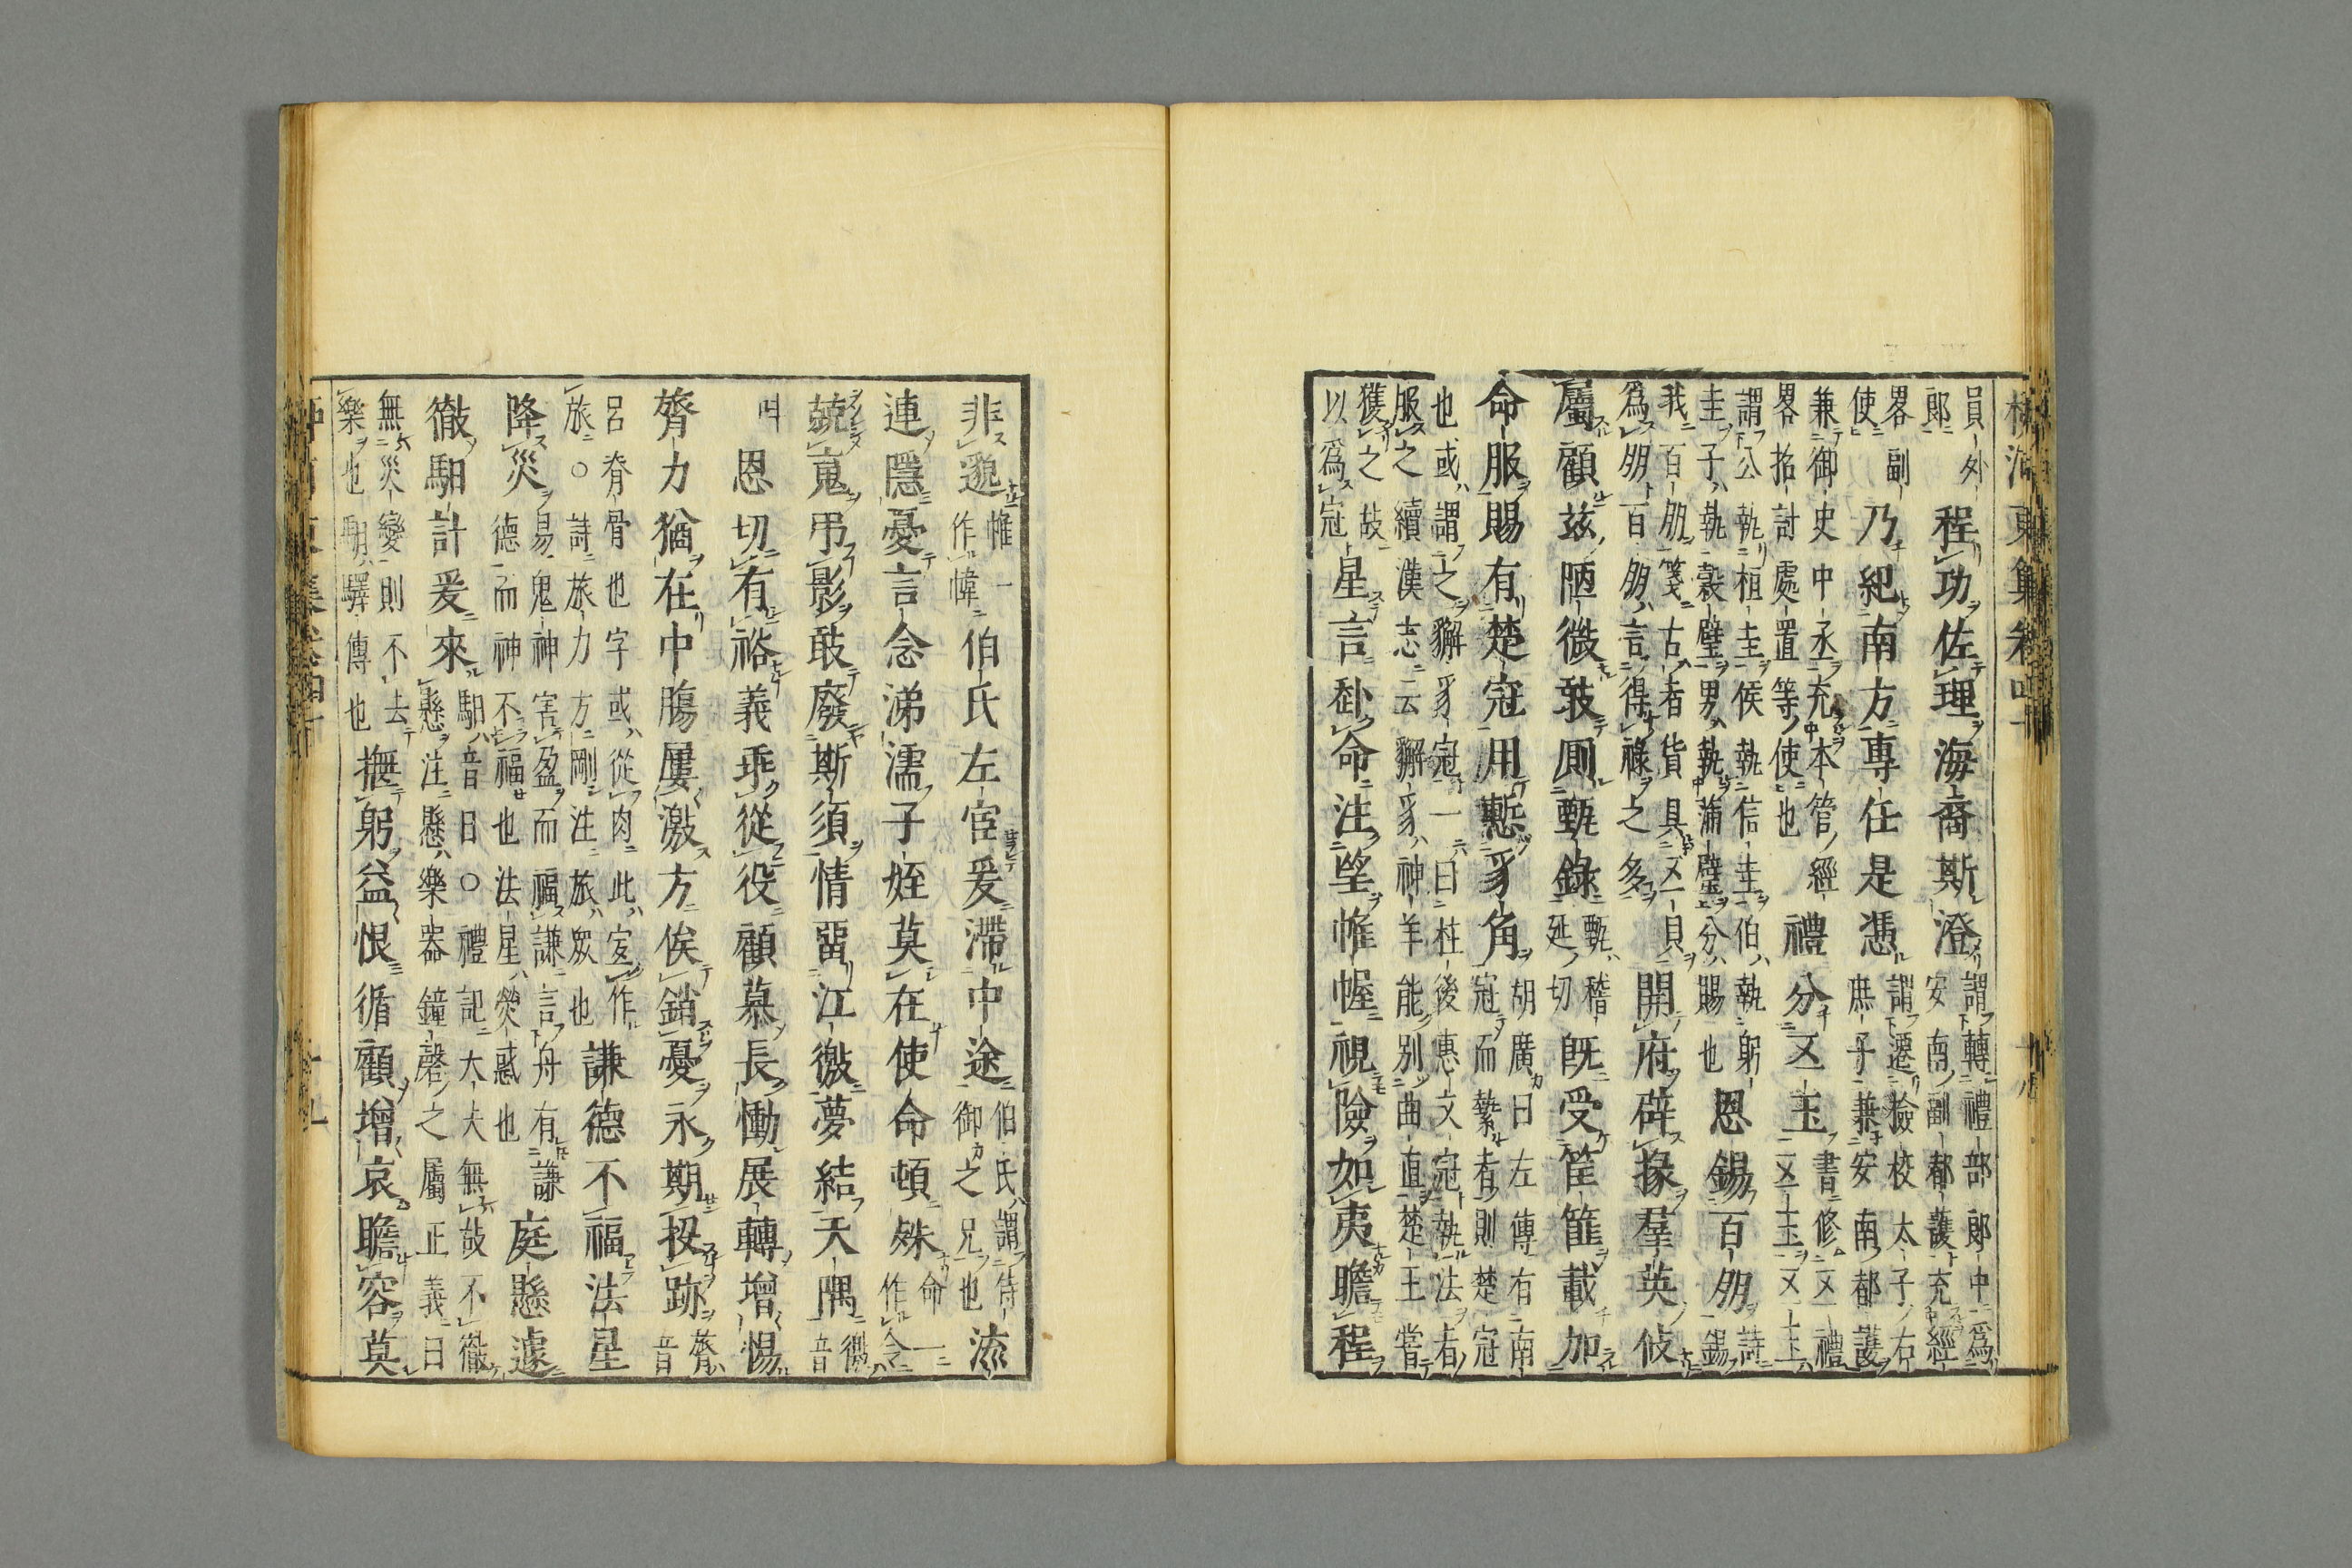 員外
郎
程功佐理海裔斯澄
謂轉禮部郎中為
安南副都護充經
畧副
使
乃紀南方專任是憑
謂遷檢校太子右
庶子兼安南都護
兼御史中丞充本管經
畧招討處置等使也
禮分叉玉
書修叉禮
叉玉叉上
謂公執桓圭侯執信圭伯執躬
圭子執穀璧男執蒲璧分賜也
恩錫百朋
詩
錫
我百朋箋古者貨具叉貝
為朋百朋言得祿之多
開府辟掾羣英攸
屬顧茲陋微敢圓甄錄
甄稽
延切
既受筐篚載加
命服賜有楚冠用慙豸角
胡廣曰左傳有南
冠而縶者則楚冠
也或謂之獬豸冠一曰柱後惠文冠執法者
服之續漢志云獬豸神羊能別曲直楚王嘗
獲之故
以為冠
星言赴命注望帷幄視險如夷瞻程
非邈
帷一
作幃
伯氏左宦爰滯中途
伯氏謂侍
御之兄也
添
連隱憂言念涕濡子姪莫在使命頓殊
命一
作令
兢魂弔影敢廢斯須情留江徼夢結天隅
徼
音
叫
恩切有裕義乖從役顧慕長慟展轉增惕
膂力猶在中腸屢激方俟銷憂永期投跡
膂
音
呂脊骨也字或從肉此宜作
旅○詩旅力方剛注旅眾也
謙德不福法星
降災
易鬼神害盈而福謙言舟有謙
德而神不福也法星熒惑也
庭懸遽
徹馹計爰來
馹音日○禮記大夫無故不徹
懸注懸樂器鐘磬之屬正義曰
無災變則不去
樂也馹驛傳也
撫躬益恨循顧增哀瞻容莫